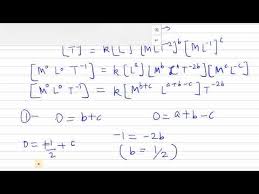 [T] = k[L]^a [ML T^-2]^b [ML^-1]^c
[M^0 L^0 T^-1] = k[L^a] [M^b L^b T^-2b] [M^c L^-c]
[M^0 L^0 T^-1] = k[M^b+c L^a+b-c T^-2b]
①- 0 = b+c 0 = a+b-c
0 = +1/2 + c -1 = -2b
(b = 1/2)